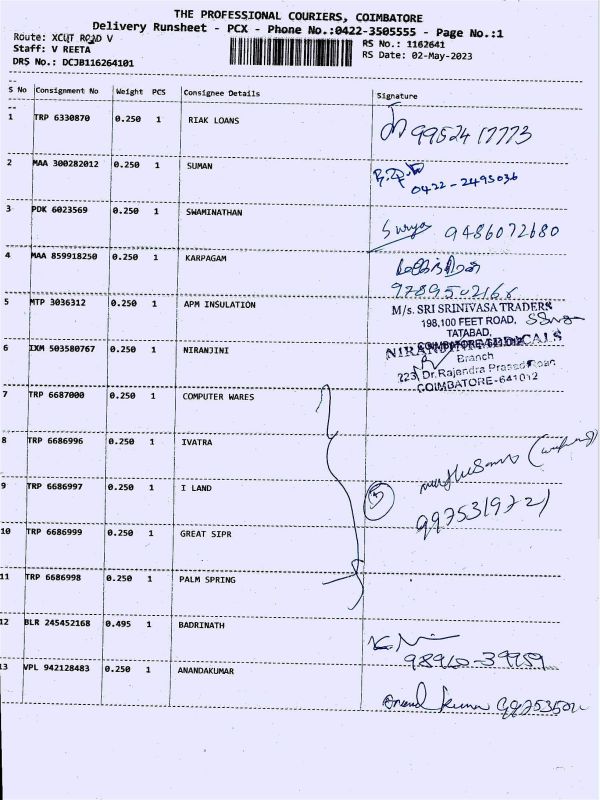 THE PROFESSIONAL COURIERS, COIMBATORE
Delivery Runsheet - PCX - Phone No.:0422-3505555 - Page No.:1
Route: XCUT ROAD V
RS No.: 1162641
Staff: V REETA
RS Date: 02-May-2023
DRS No.: DCJB116264101
S No Consignment No Weight PCS Consignee Details Signature
1 TRP 6330870 0.250 1 RIAK LOANS
9952417773
2 MAA 300282012 0.250 1 SUMAN
0422-2495036
3 PDK 6023569 0.250 1 SWAMINATHAN
Surya 9486072680
4 MAA 859918250 0.250 1 KARPAGAM
5 MTP 3036312 0.250 1 APM INSULATION
M/s. SRI SRINIVASA TRADERS
198,100 FEET ROAD,
TATABAD,
6 IXM 503580767 0.250 1 NIRANJINI
Branch
223, Dr. Rajendra Prasad Road
COIMBATORE-641012
7 TRP 6687000 0.250 1 COMPUTER WARES
8 TRP 6686996 0.250 1 IVATRA
9 TRP 6686997 0.250 1 I LAND
5
9975319721
10 TRP 6686999 0.250 1 GREAT SIPR
11 TRP 6686998 0.250 1 PALM SPRING
12 BLR 245452168 0.495 1 BADRINATH
13 VPL 942128483 0.250 1 ANANDAKUMAR
Anand kumar